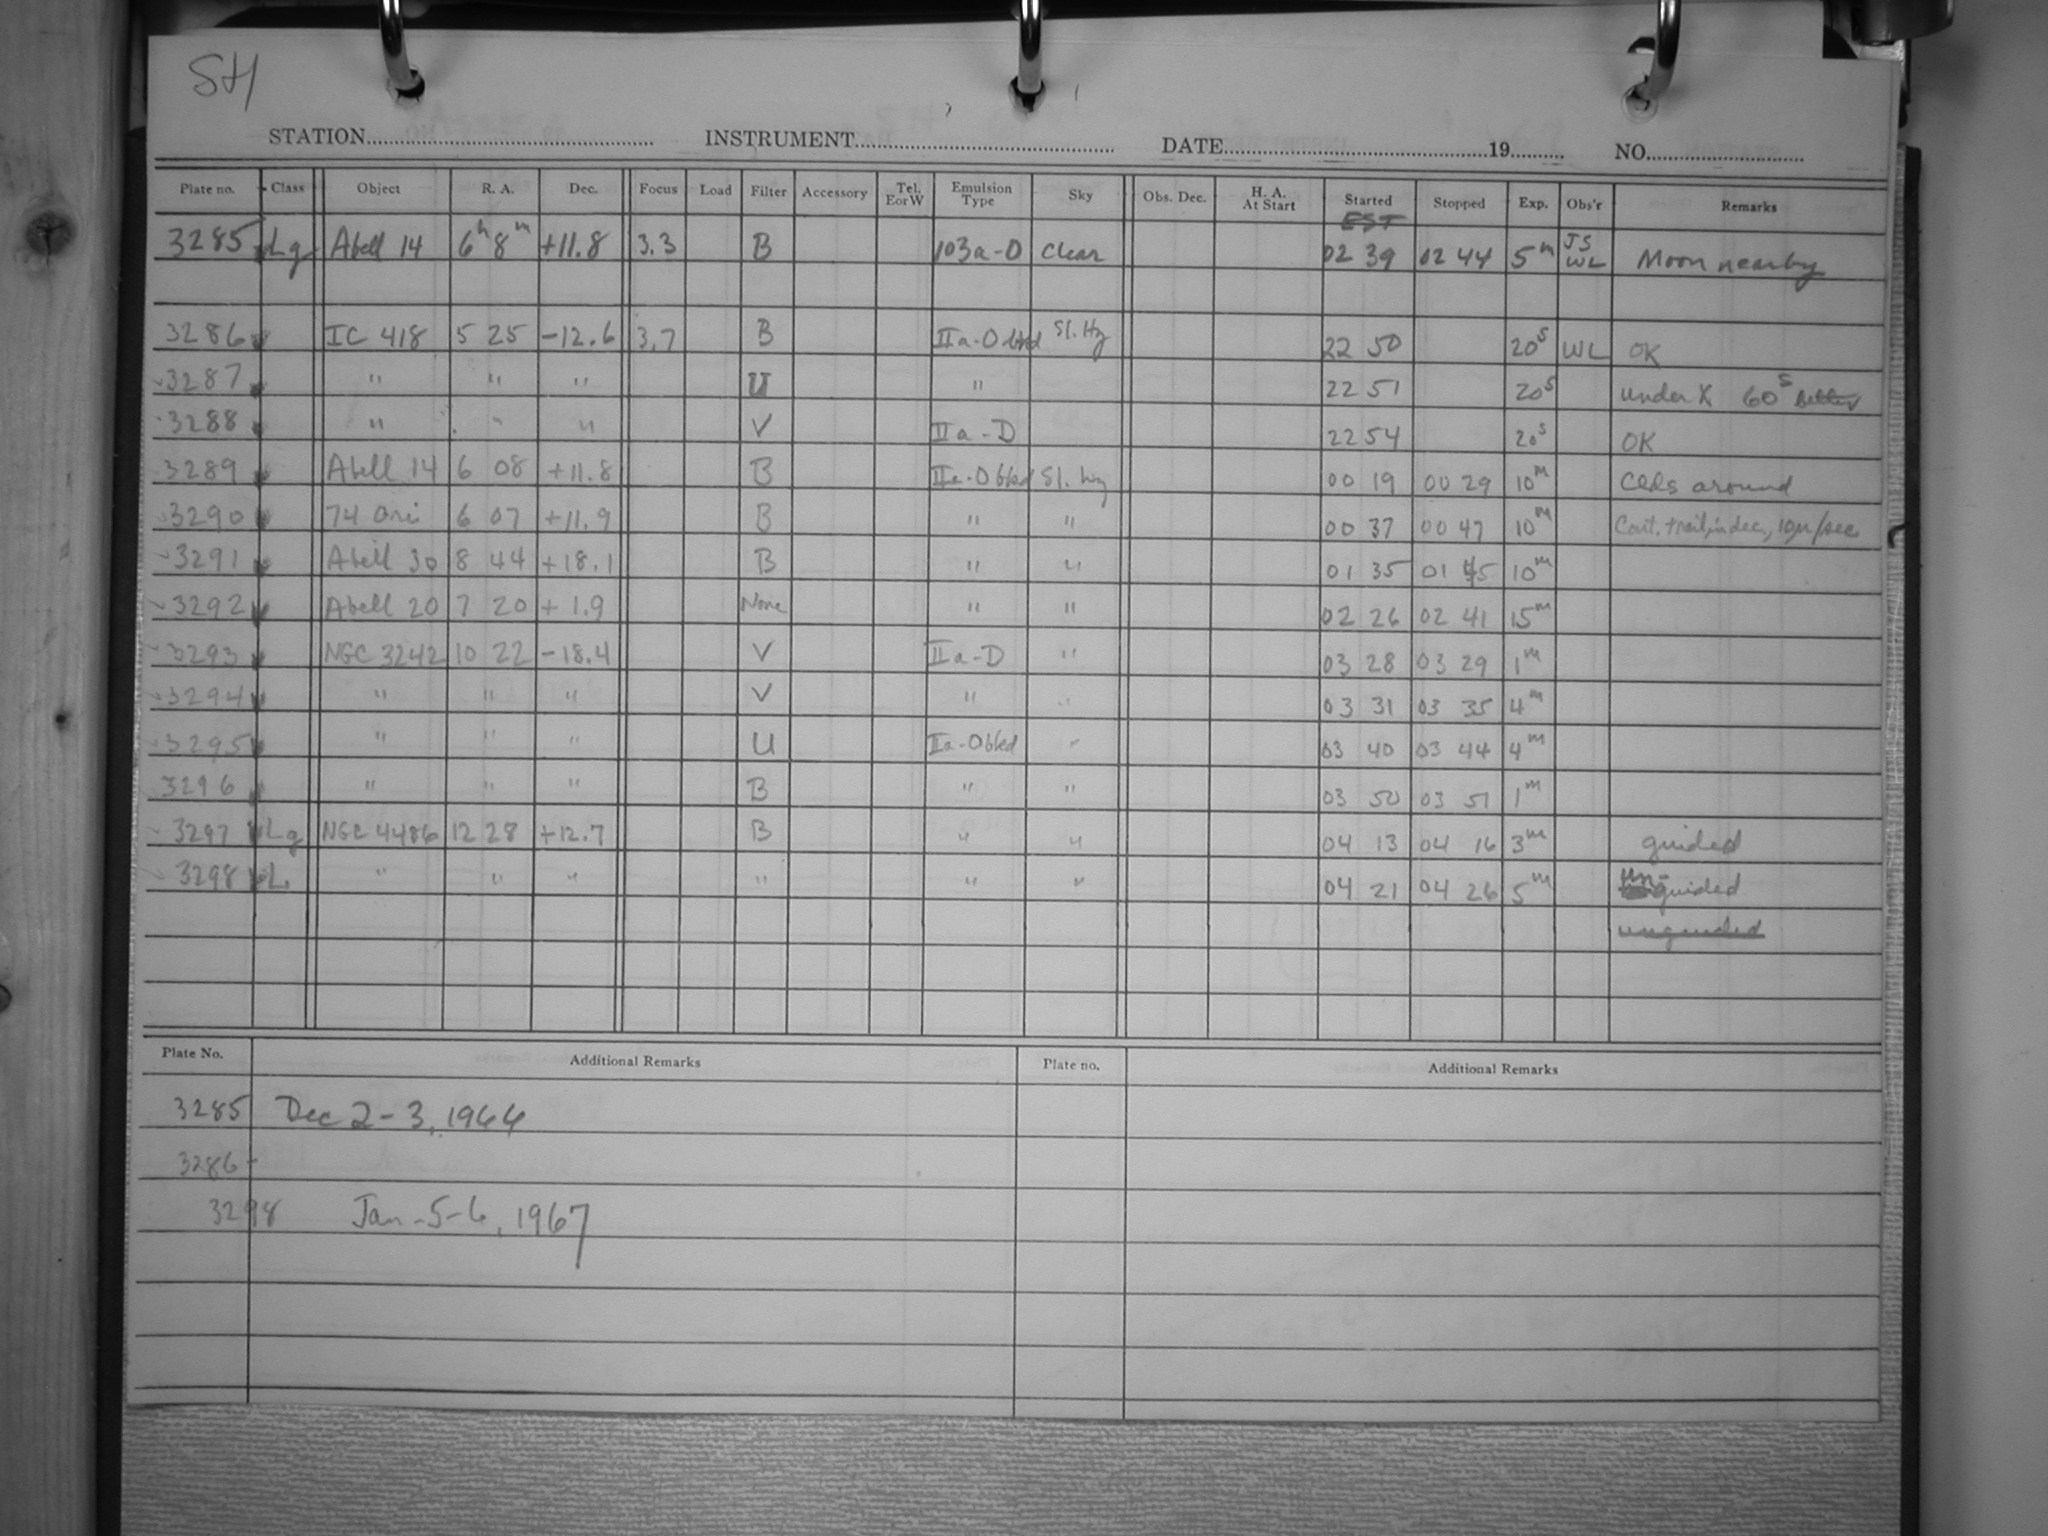 SH
STATION INSTRUMENT DATE 19 NO.
Plate no. Class Object R. A. Dec. Focus Load Filter Accessory Tel. EorW Emulsion Type Sky Obs. Dec. H. A. At Start Started Stopped Exp. Obs'r Remarks
EST
3285 Lg Abell 14 6h 8m +11.8 3.3 B 103a-O Clear 02 39 02 44 5m JS WL Moon nearby
3286 IC 418 5 25 -12.6 3.7 B IIa-O bkd Sl. Hz 22 50 20s WL OK
3287 " " " U " 22 51 20s under X 60s better
3288 " " " V IIa-D 22 54 20s OK
3289 Abell 14 6 08 +11.8 B IIa-O bked Sl. hz 00 19 00 29 10m Clds around
3290 74 Ori 6 07 +11.9 B " " 00 37 00 47 10m Cont. trail, in dec., 10μ/sec
3291 Abell 30 8 44 +18.1 B " " 01 35 01 45 10m
3292 Abell 20 7 20 +1.9 None " " 02 26 02 41 15m
3293 NGC 3242 10 22 -18.4 V IIa-D " 03 28 03 29 1m
3294 " " " V " " 03 31 03 35 4m
3295 " " " U IIa-O bked " 03 40 03 44 4m
3296 " " " B " " 03 50 03 51 1m
3297 Lg NGC 4486 12 28 +12.7 B " " 04 13 04 16 3m guided
3298 L " " " " " " 04 21 04 26 5m un-guided
unguided
Plate No. Additional Remarks Plate no. Additional Remarks
3285 Dec 2-3, 1966
3286-
3298 Jan-5-6, 1967